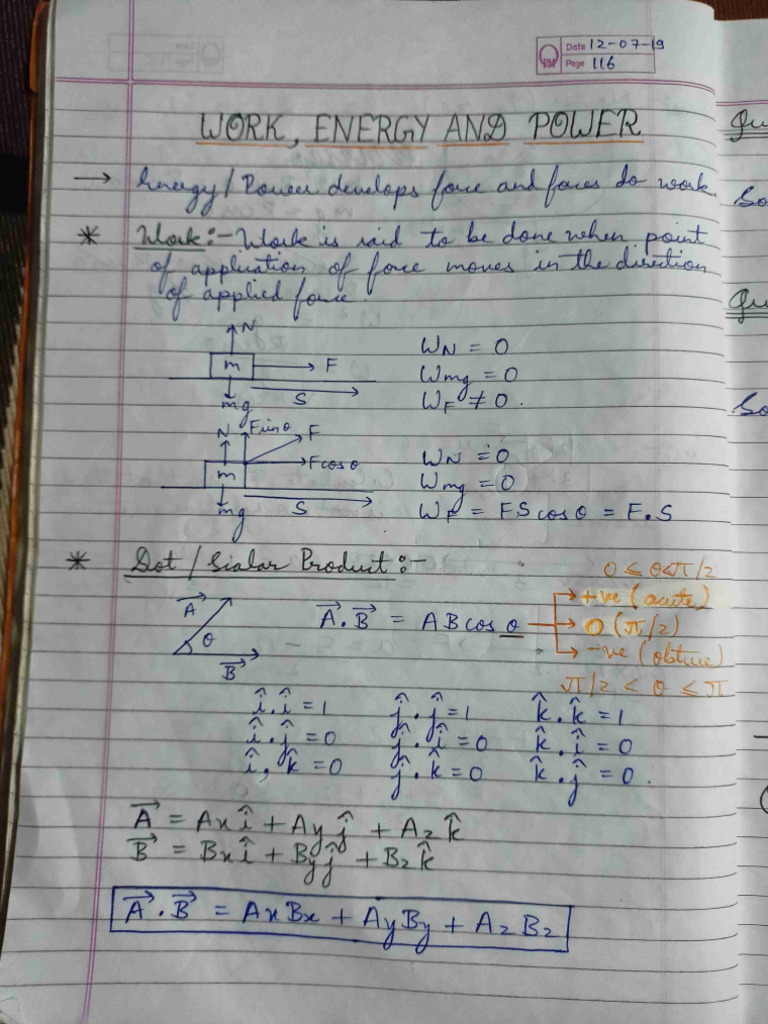 Date 12-07-19
Page 116
WORK, ENERGY AND POWER
→ Energy/Power develops force and forces do work.
* Work:- Work is said to be done when point
of application of force moves in the direction
of applied force
N
m F
mg S
WN = 0
Wmg = 0
WF ≠ 0.
N Fsinθ F
m Fcosθ
mg S
WN = 0
Wmg = 0
WF = FS cosθ = F.S
* Dot / Scalar Product:-
A⃗ θ B⃗
A⃗.B⃗ = AB cos θ
0 ≤ θ<π/2
+ve (acute)
0 (π/2)
-ve (obtuse)
π/2 < θ ≤ π
î.î =1 ĵ.ĵ=1 k̂.k̂ =1
î.ĵ =0 ĵ.î =0 k̂.î =0
î.k̂ =0 ĵ.k̂ =0 k̂.ĵ =0.
A⃗ = Axî + Ayĵ + Azk̂
B⃗ = Bxî + Byĵ + Bzk̂
A⃗.B⃗ = AxBx + AyBy + AzBz
Qu
So
Qu
So